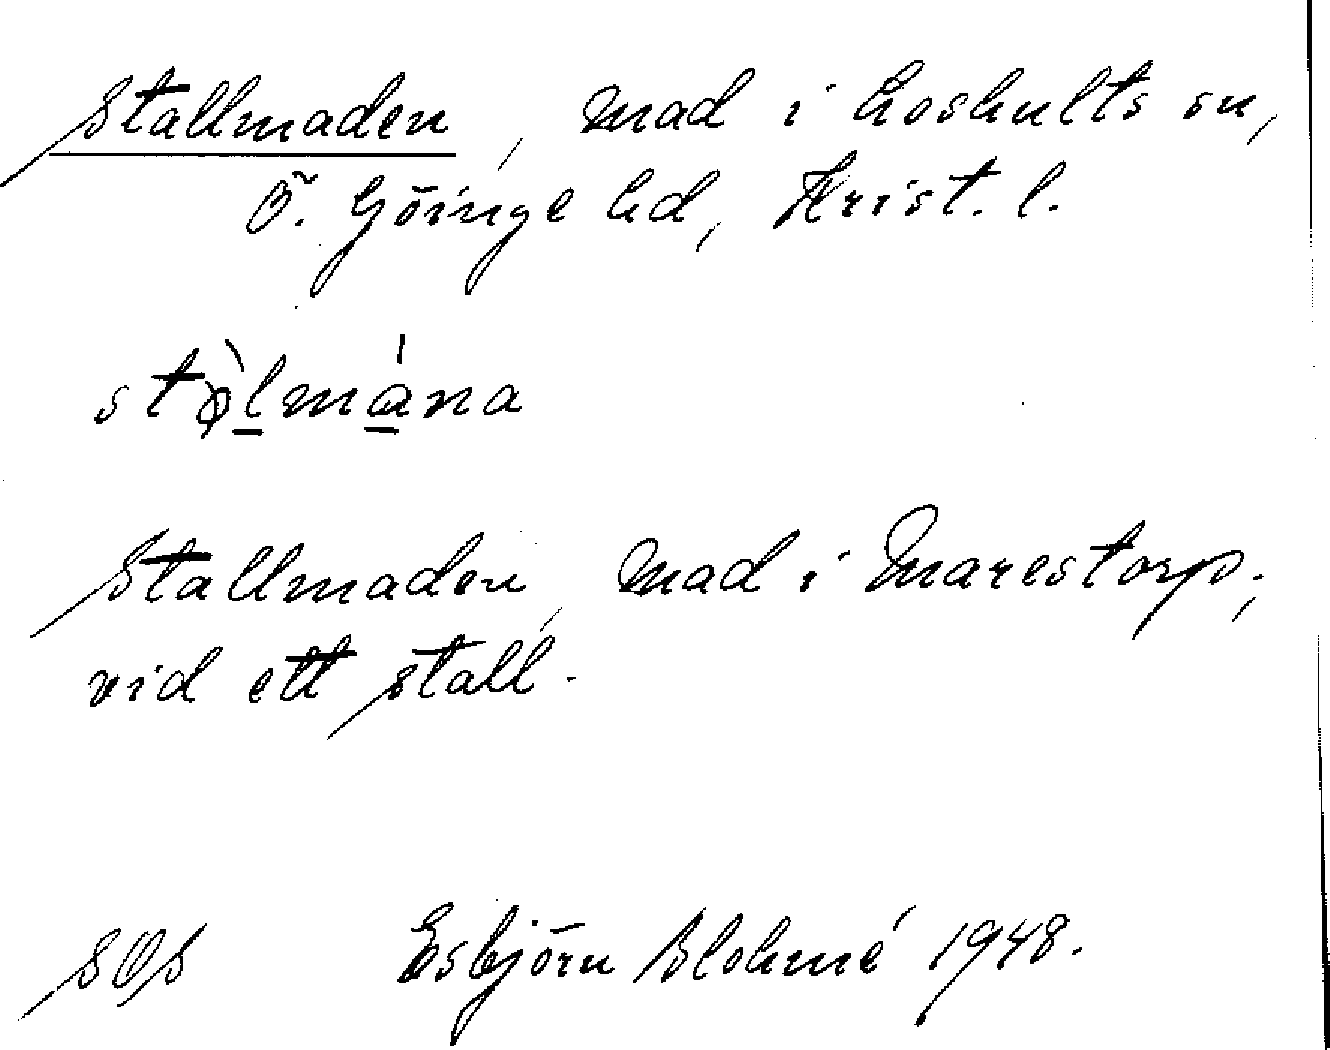 Stallmaden, mad i Loshults sn,
Ö. Göinge hd, Krist. l.
stàlmána
Stallmaden, mad i Marestorp;
vid ett stall.
SOS Esbjörn Blohmé 1948.